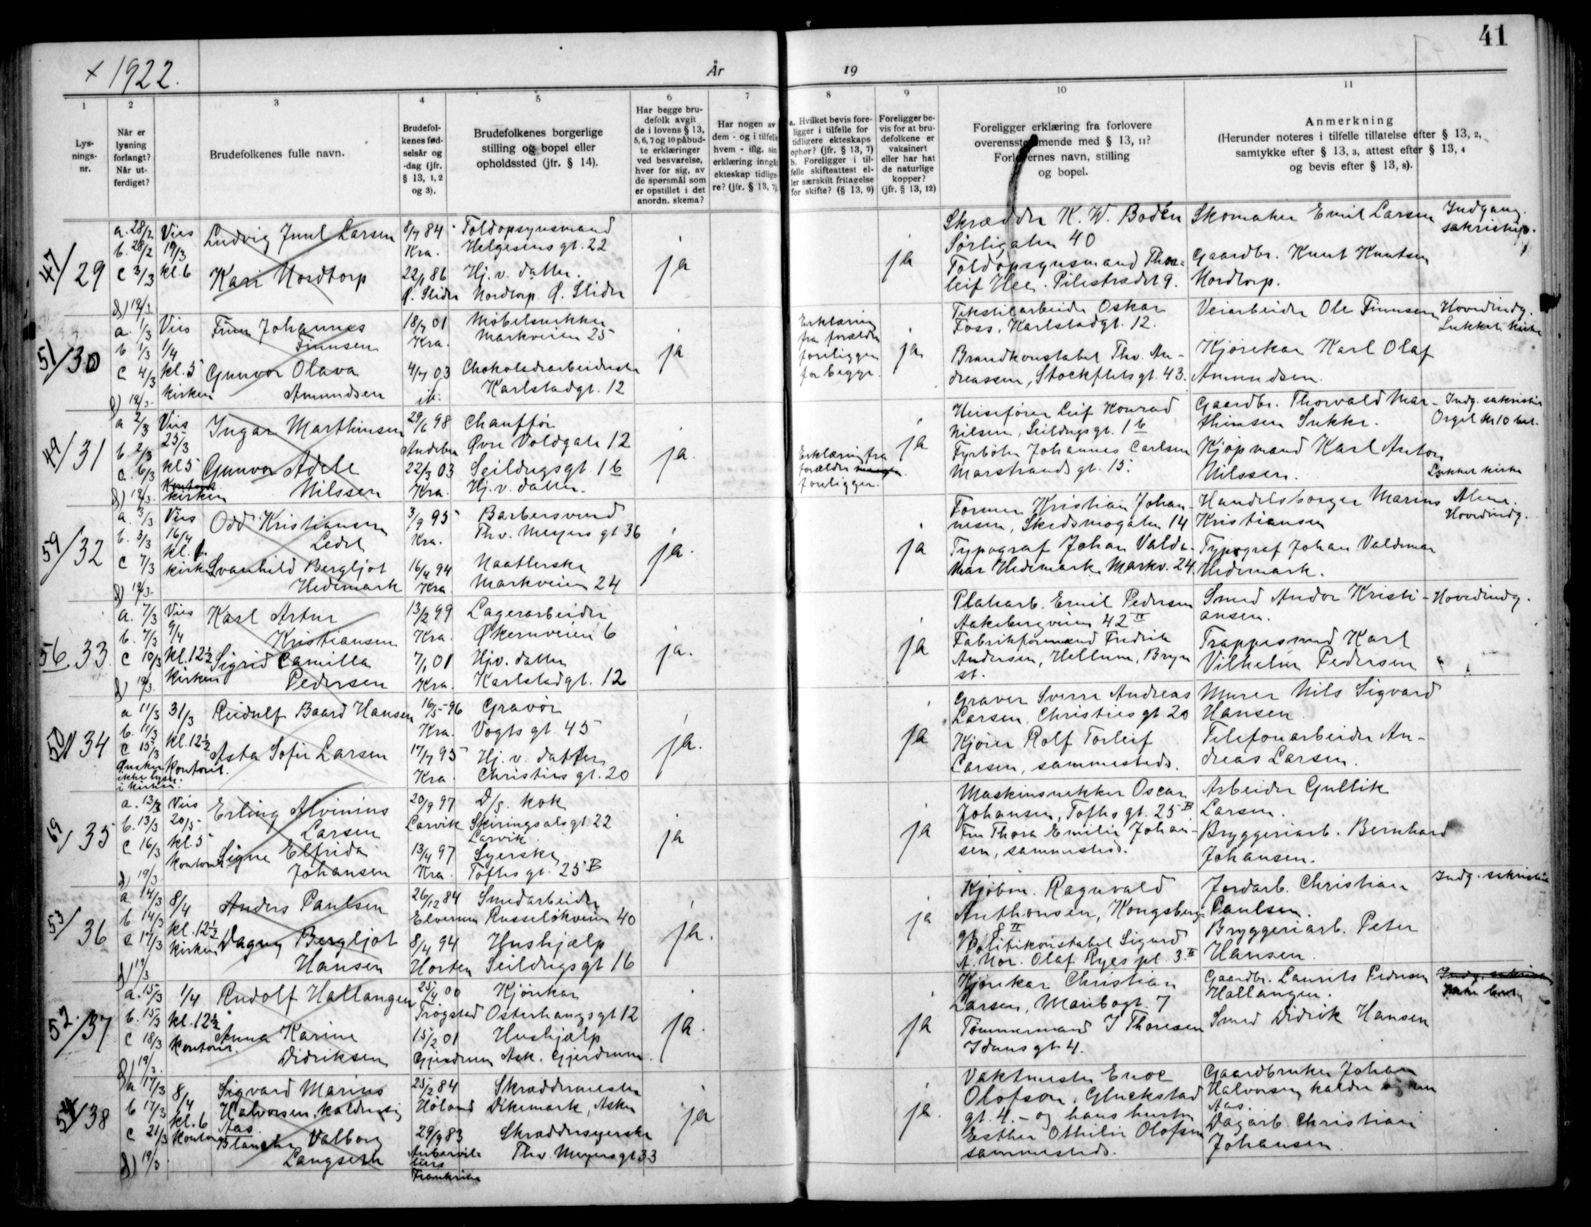 41
x 1922.
År
19
1
2
3
4
5
6
7
8
9
10
11
Lys-
nings-
nr.
Når er
lysning
forlangt?
Når ut-
ferdiget?
Brudefolkenes fulle navn.
Brudefol-
kenes fød-
selsår og
-dag (jfr.
§ 13, 1, 2
og 3).
Brudefolkenes borgerlige
stilling og bopel eller
opholdssted (jfr. § 14).
Har begge bru-
defolk avgit
de i lovens § 13,
5, 6, 7 og 10 påbud-
te erklæringer
ved besvarelse,
hver for sig, av
de spørsmål som
er opstillet i det
anordn. skema?
Har nogen av
dem - og i tilfelle
hvem - iflg. sin
erklæring inngå
ekteskap tidlige-
re? (jfr. § 13, 7)
a. Hvilket bevis fore-
ligger i tilfelle for
tidligere ekteskaps
ophør? (jfr. § 13, 7)
b. Foreligger i til-
felle skifteattest el-
ler særskilt fritagelse
for skifte? (§ 13, 9)
Foreligger be-
vis for at bru-
defolkene er
vaksinert
eller har hat
de naturlige
kopper?
(jfr. § 13, 12)
Foreligger erklæring fra forlovere
overensstemmende med § 13, 11?
Forlovernes navn, stilling
og bopel.
Anmerkning
(Herunder noteres i tilfelle tillatelse efter § 13, 2,
samtykke efter § 13, 3, attest efter § 13, 4
og bevis efter § 13, 8).
47/29
a. 28/2 Vies
b. 28/2 19/3
c 3/3 kl. 6
Ludvig Juul Larsen
Kari Nordtorp
8/9 84
Kra.
22/9 86
Ø. Slidre
Toldopsynsmand
Helgesens gt. 22
Hj. v. datter.
Nordtorp Ø. Slidre
ja
ja
Skrædder K. W. Bodén
Sørligaten 40
Toldopsynsmand Thor-
leif Hee. Pilestrædet 9.
Skomaker Emil Larsen
Gaardbr. Knut Knutsen
Nordtorp.
Indgang
sakristiet.
51/30
a. 1/3 Vies
b 1/3 1/4
c 4/3 kl. 5
d) 19/3. kirken
Finn Johannes
Finnsen
Gunvor Olava
Amundsen
18/7 01
Kra.
4/7 03
Møbelsnekker
Markveien 25
Chokoladearbeiderske
Karlstadgt. 12
ja
Erklæring
fra forældre
foreligger
for begge.
ja
Tekstilarbeider Oskar
Foss, Karlstadgt. 12.
Brandkonstabel Thv. An-
dreassen, Stockfletsgt. 43.
Veiarbeider Ole Finnsen
Kjørekar Karl Olaf
Amundsen.
Hovedindg.
Lukket kirke
49/31
a 2/3 Vies
b. 2/3 25/3
c 6/3 kl 5
d) 19/3. kirken
Ingar Marthinsen
Gunvor Adele
Nilssen
29/6 98
Andebu
22/7 03
Kra.
Chauffør
Øvre Voldgate 12
Seildugsgt. 16
Hj. v. datter.
ja
Erklæring fra
forældre
foreligger.
ja
Husefører Leif Konrad
Nilsen, Seildugsgt. 16
Fyrbøter Johannes Carlsen
Marstrandsgt. 15.
Gaardbr. Thorvald Mar-
thinsen Sukke.
Kjøpmand Karl Anton
Nilssen.
Indg. sakristiet
Orgel kr 10 bet.
Lukket kirke
59/32
a. 3/3 Vies
b. 3/3 16/4
c 7/3 kl.
d) 19/3. kirken
Odd Kristiansen
Svanhild Bergljot
Hedemark
3/9 95
Kra.
16/4 94
Kra.
Barbersvend
Thv. Meyers gt 36
Naatlerske
Markveien 24
ja.
ja
Former Kristian Johan-
nesen, Skedsmogaten 14
Typograf Johan Valde-
mar Hedemark Markv. 24
Handelsborger Marius
Kristiansen
Typograf Johan Valdemar
Hedemark.
Alene.
Hovedindg.
56/33
a. 7/3 Vies
b. 7/3 9/4
c 10/3 kl. 12½
d) 19/3. kirken
Karl Artur
Kristiansen
Sigrid Camilla
Pedersen
13/2 99
Kra.
7/1 01
Kra.
Lagerarbeider
Økernveien 6
Hjv. datter
Karlstadgt. 12
ja.
ja
Platearb. Emil Pedersen
Aakebergveien 42 II
Fabrikformand Fredrik
Andersen, Hellum, Bryn
st.
Smed Andor Kristi-
ansen.
Trappesmed Karl
Vilhelm Pedersen
Hovedindg.
50/34
a 11/3 31/3
b. 11/3
c 15/3 kl. 12½
Ønsker kontoret.
ikke lysn.
i kirken
Rudolf Baard Hansen
Asta Sofie Larsen
16/5-96
Kra.
17/7 95
Kra.
Gravør
Vogts gt 45
Hj. v. datter
Christies gt. 20
ja.
ja
Gravør Sverre Andreas
Larsen, Christies gt 20
Kjører Rolf Torleif
Larsen, sammesteds.
Murer Nils Sigvard
Hansen.
Telefonarbeider An-
dreas Larsen.
69/35
a. 13/3 Vies
b. 13/3 20/5
c 16/3 kl. 5
d) 19/3 kontoret
Erling Alvinius
Larsen
Signe Elfrida
Johansen
20/9 97
Larvik
13/4 97
Kra.
D/S. kok
Skiringsalsgt. 22
Larvik
Syerske
Toftes gt. 25 B
ja
ja
Maskinsnekker Oscar
Johansen, Toftes gt. 25 B
Fru Thora Emilie Johan-
sen, sammesteds.
Arbeider Gullik
Larsen.
Bryggeriarb. Bernhard
Johansen.
53/36
a 14/3 8/4
b 14/3 kl. 12½
c 17/3 kirken
d) 19/3
Anders Paulsen
Dagny Bergljot
Hansen
26/12 84
Elverum
8/4 94
Horten
Smedarbeider
Russeløkveien 40
Hushjælp
Seildugsgt 16
ja.
ja
Kjøbm. Ragnvald
Anthonsen, Kongsberg-
gt. 8 II
Politikonstabel Sigurd
A. Nor. Olaf Ryes pl. 3 II
Jordarb. Christian
Paulsen.
Bryggeriarb. Peter
Hansen.
Indg. sakristiet
52/37
a. 15/3 1/4
b. 15/3 kl. 12½
c 18/3 kontoret.
d) 19/3.
Rudolf Hallangen
Anna Karine
Didriksen
25/4 00
Trøgstad
15/2 01
Gjerdrum
Kjørekar
Osterhausgt 12
Hushjælp
Ask. Gjerdrum.
ja.
ja
Kjørekar Christian
Larsen, Maribogt. 7
Tømmermand J Thoresen
Idunsgt 4.
Gaardbr. Laurits Pedersen
Hallangen.
Smed Didrik Hansen
54/38
a 17/3 8/4
b 17/3 kl. 6
c 21/3 kontoret
d) 19/3
Sigvard Marius
Halvorsen, kalder sig
Aas.
Blanche Valborg
Langseth
25/2 84
Høland
29/9 83
Frankrike
Skræddermester
Dikemark, Asker
Skræddersyerske
Thv. Meyersgt 33
ja
ja
Vaktmester Enoc
Olofson, Glückstad
gt. 4. - og hans hustru
Esther Othilie Olofson
sammesteds.
Gaardbruker Johan
Halvorsen kalder
Aas.
Dagarb. Christian
Johansen